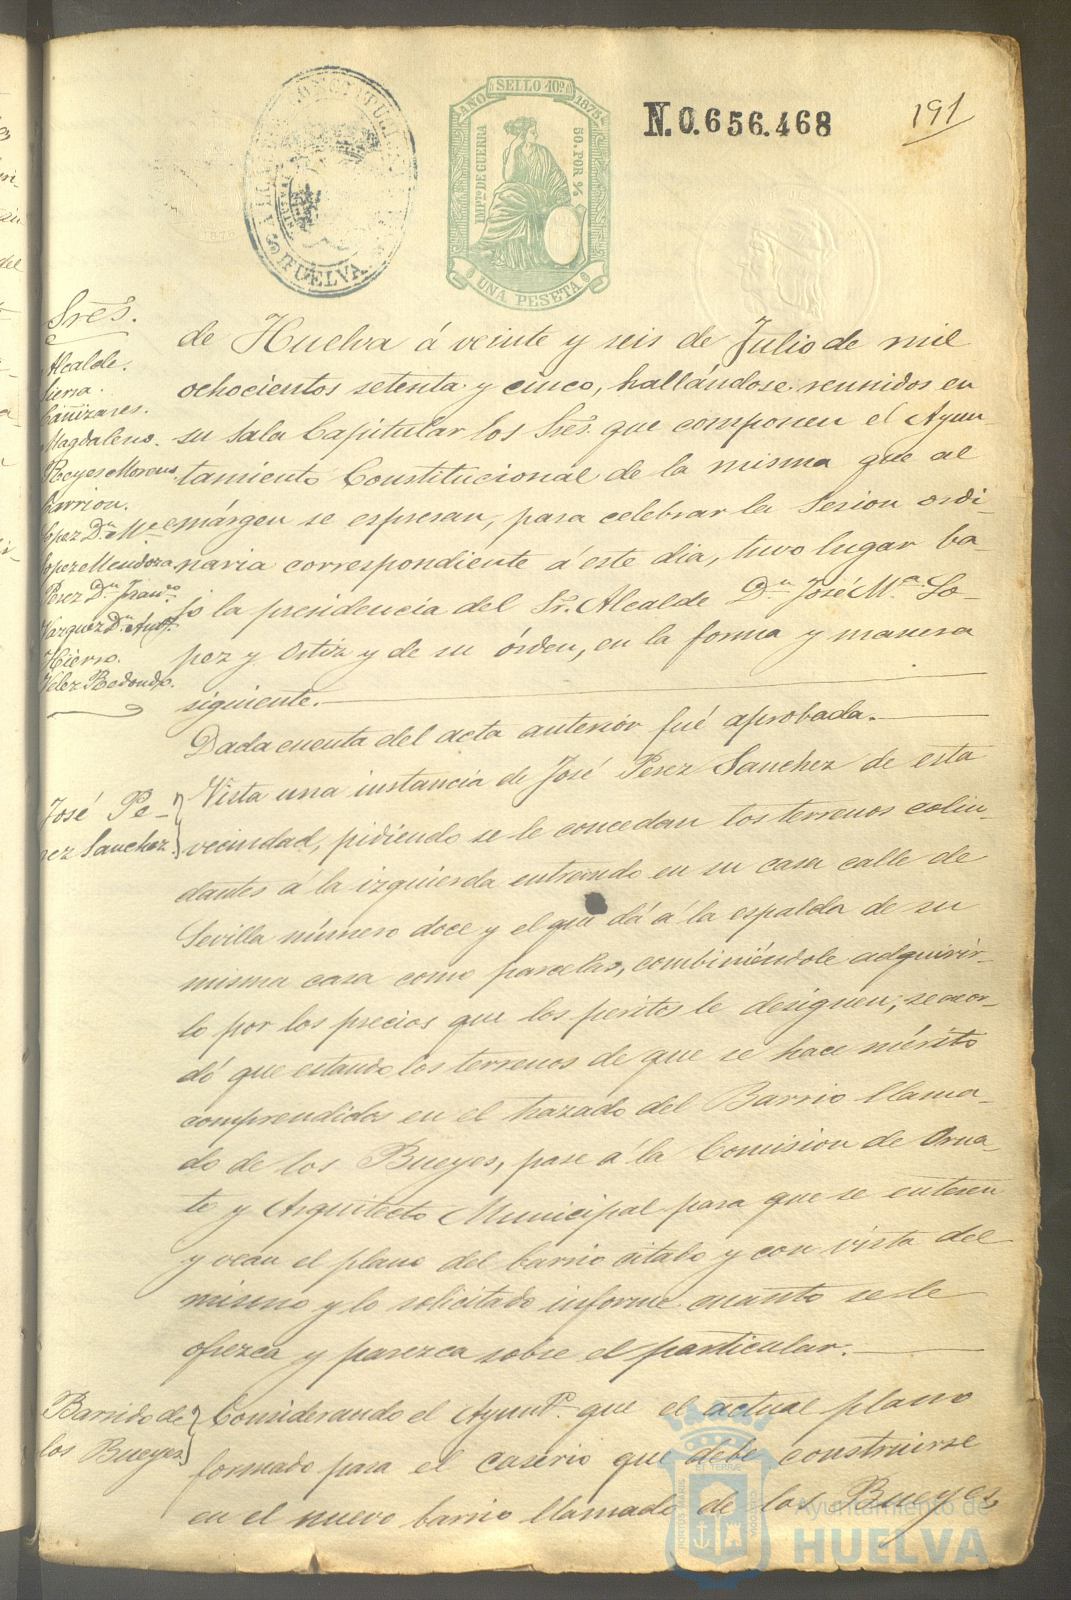 AÑO SELLO 10º 1875
IMPTO DE GUERRA
50. POR %
UNA PESETA
HUELVA
N.0.656.468
191
Sres.
Alcalde.
Sierra.
Cañizares.
Magdaleno.
Reyes Moreno
Barrion.
Lopez Dn. Me
Lopez Mendoza
Perez Dn. Franco.
Vazquez Dn. Anto.
Hierro.
Velez Redondo.
de Huelva á veinte y seis de Julio de mil
ochocientos setenta y cinco, hallándose reunidos en
su Sala Capitular los Sres. que componen el Ayun-
tamiento Constitucional de la misma que al
márgen se espresan, para celebrar la Sesion ordi-
naria correspondiente á este dia, tuvo lugar ba-
jo la presidencia del Sr. Alcalde Dn. José Ma. Lo-
pez y Ortiz y de su órden, en la forma y manera
siguiente.
Dada cuenta del acta anterior fué aprobada.
José Pe-
rez Sanchez.
Vista una instancia de José Perez Sanchez de esta
vecindad, pidiendo se le concedan los terrenos colin-
dantes á la izquierda entrando en su casa calle de
Sevilla número doce y el que dá á la espalda de su
misma casa como parcelas, combiniéndole adquirir-
lo por los precios que los peritos le designen; se acor-
dó que estando los terrenos de que se hace mérito
comprendidos en el trazado del Barrio llama-
do de los Bueyes, pase á la Comision de Orna-
to y Arquitecto Municipal para que se enteren
y vean el plano del barrio citado y con vista del
mismo y lo solicitado informe cuanto se le
ofrezca y parezca sobre el particular.
Barrio de
los Bueyes
Considerando el Ayunto. que el actual plano
formado para el caserio que debe construirse
en el nuevo barrio llamado de los Bueyes
Ayuntamiento de
HUELVA